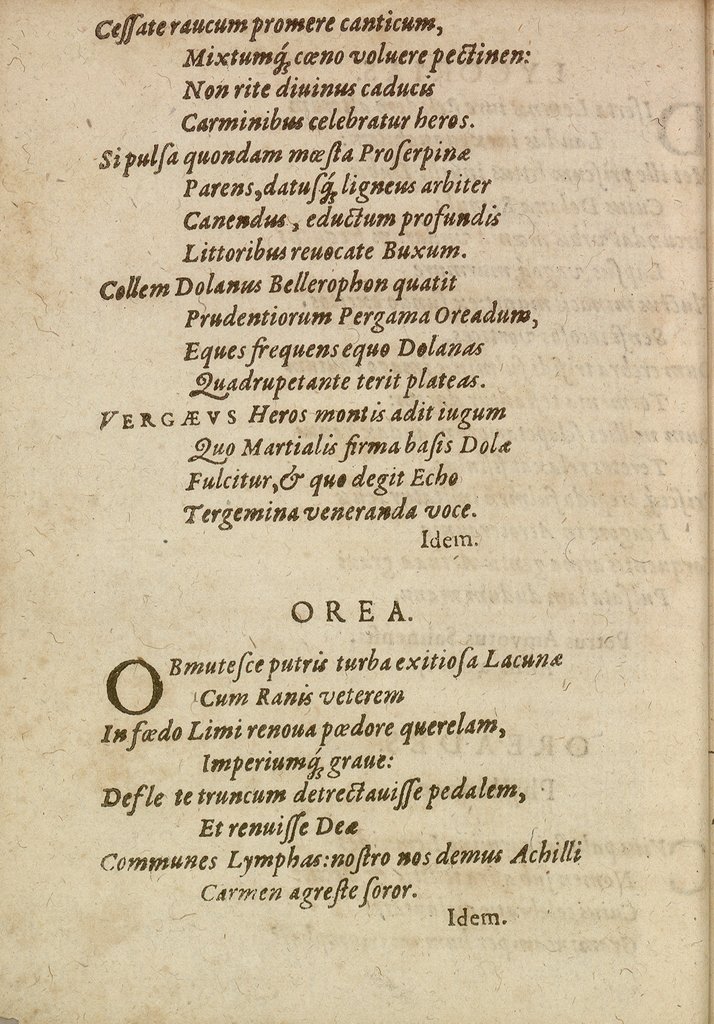 Cessate raucum promere canticum,
Mixtumq́; cœno voluere pectinen:
Non rite diuinus caducis
Carminibus celebratur heros.
Si pulsa quondam mœsta Proserpinæ
Parens, datusq́; ligneus arbiter
Canendus, eductum profundis
Littoribus reuocate Buxum.
Collem Dolanus Bellerophon quatit
Prudentiorum Pergama Oreadum,
Eques frequens equo Dolanas
Quadrupetante terit plateas.
VERGÆVS Heros montis adit iugum
Quo Martialis firma basis Dolæ
Fulcitur, & quo degit Echo
Tergemina veneranda voce.
Idem.
OREA.
OBmutesce putris turba exitiosa Lacunæ
Cum Ranis veterem
In fœdo Limi renoua pœdore querelam,
Imperiumq́; graue:
Defle te truncum detrectauisse pedalem,
Et renuisse Deæ
Communes Lymphas: nostro nos demus Achilli
Carmen agreste soror.
Idem.